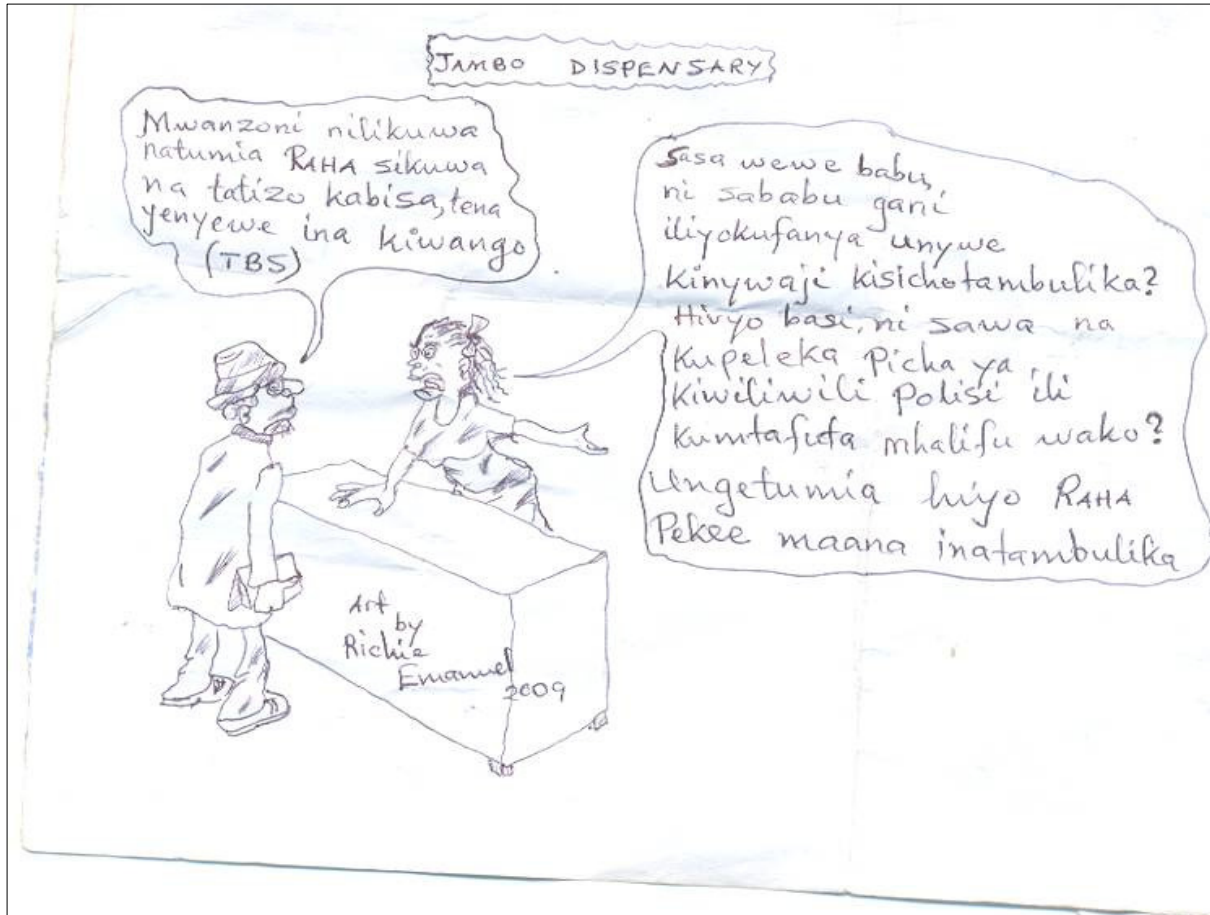 JAMBO DISPENSARY
Mwanzoni nilikuwa
natumia RAHA sikuwa
na tatizo kabisa, tena
yenyewe ina kiwango
(TBS)
Sasa wewe babu,
ni sababu gani
iliyokufanya unywe
kinywaji kisichotambulika?
Hivyo basi, ni sawa na
kupeleka picha ya
kiwiliwili polisi ili
kumtafuta mhalifu wako?
Ungetumia hiyo RAHA
Pekee maana inatambulika
Art
by
Richie
Emanuel
2009